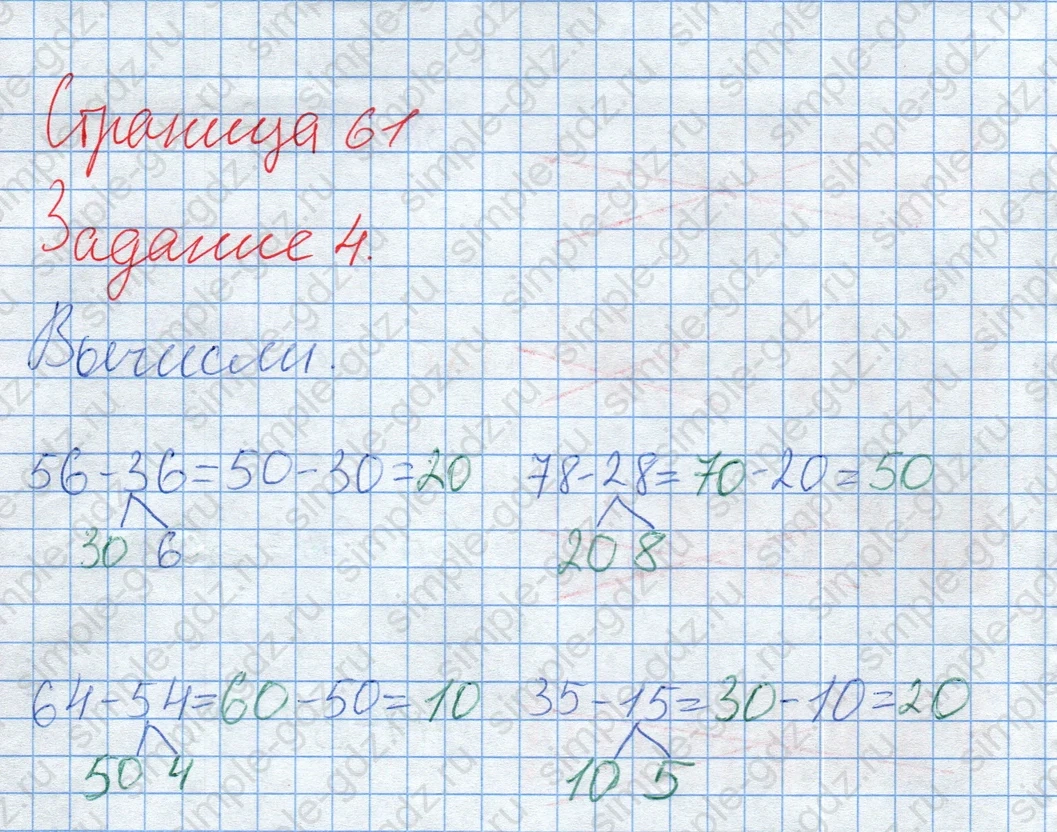 Страница 61
Задание 4.
Вычисли.
56-36=50-30=20 78-28=70-20=50
30 6 20 8
64-54=60-50=10 35-15=30-10=20
50 4 10 5
simple-gdz.ru